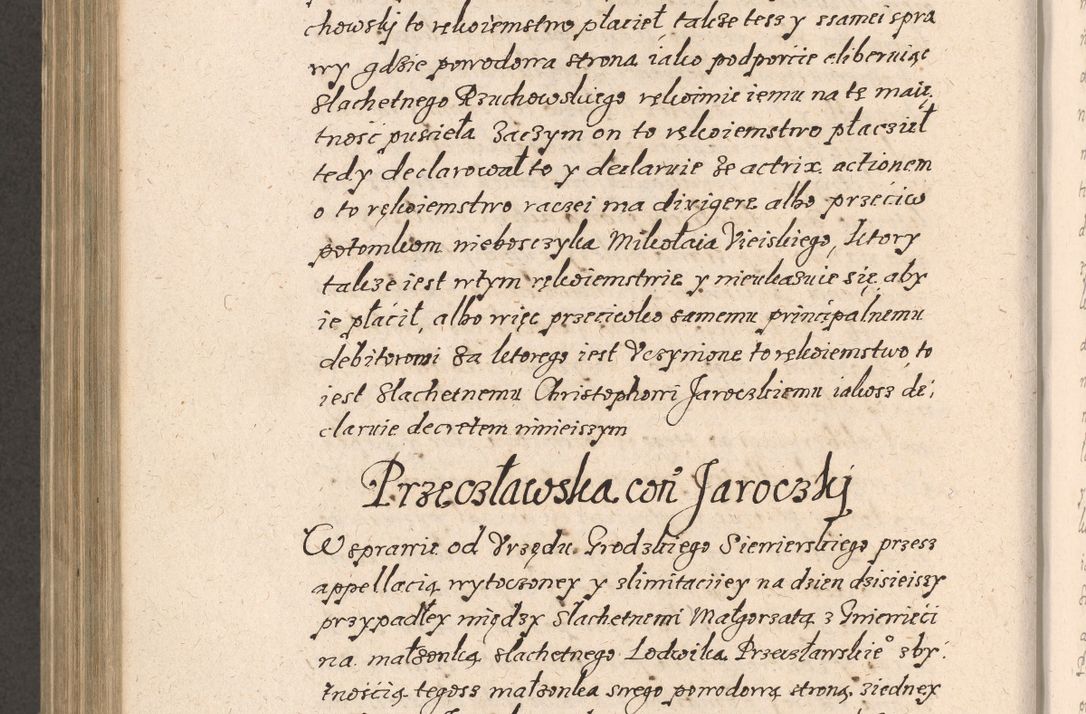 chowskj to rękoiemstwo płacieł także tesz y ssamei spra
wy gdzie powodowa strona iako podporcie eliberuiąc
Slachetnego Rzuchowskiego rękoimie iemu na tę maię
tność pusciela Zaczym on to rękoiemstwo płacził
tedy declarował to y declaruie że actrix actionem
o to rękoiemstwo raczei ma dirigere albo przeciw
potomkom nieboszczyka Mikołaia Vieiskiego, ktory
także iest wtym rękoiemstwie y nieukazuie się, aby
ie płácił, albo więc przeciwko samemu principalnemu
debitorowi za ktorego iest Vczynione to rękoiemstwo, to
iest Slachetnemu Christophorri Jaroczkiemu iakosz de,
claruie decretem ninieiszym
Przeczławska con̄ Jaroczkj
W sprawie od Vrzędu Grodzkiego Siewierskiego przesz
appellacią wytoczoney y zlimitaciiey na dzien dzisieiszy
przypadłey między Slachetnemi Małgorzatą z Gniewięci
na małżonką slachetnego Lodwika Przecsławskie° zby,
tnością tegosz małżonka swego powodową stroną, ziedney